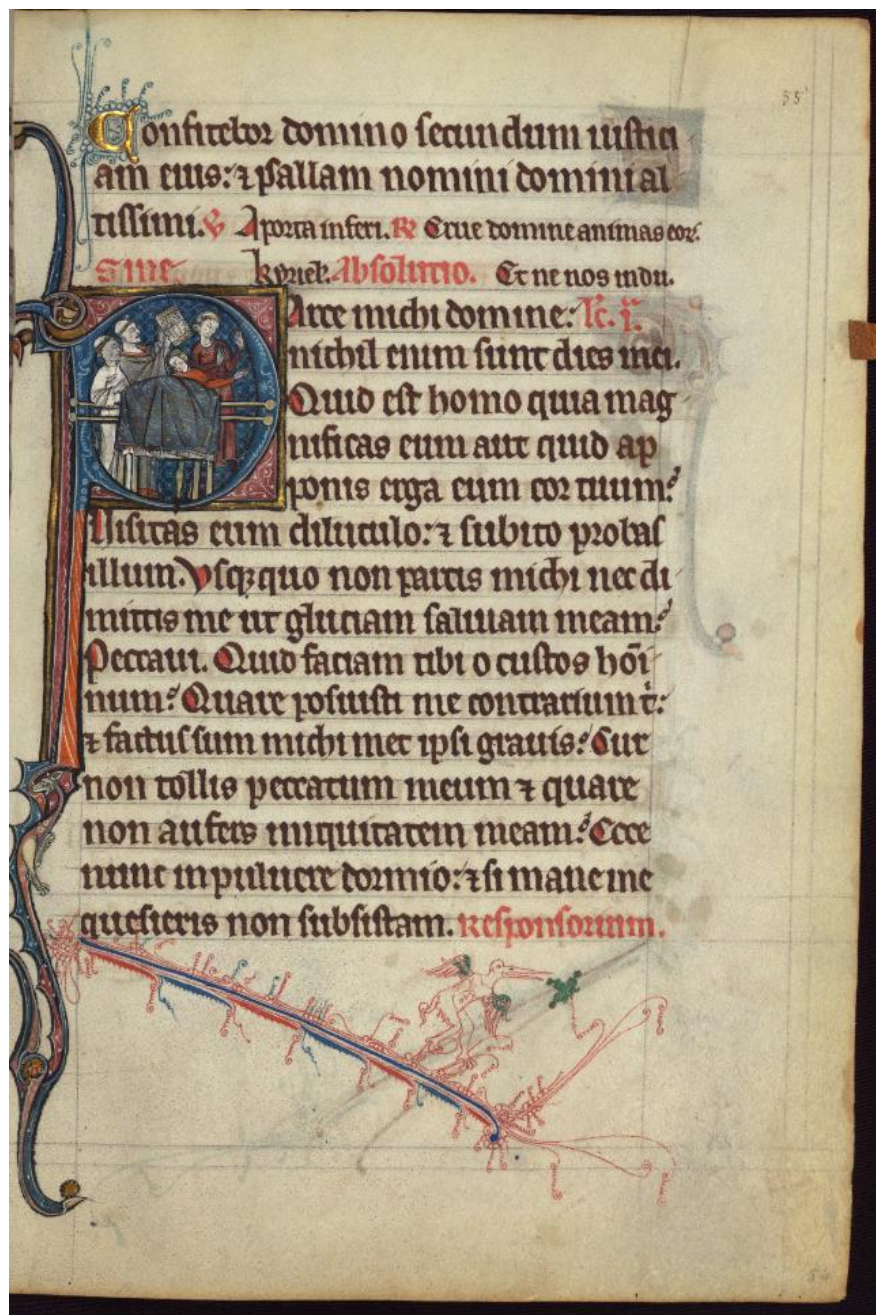 55
Confitebor domino secundum iustici
am eius: ⁊ psallam nomini domini al
tissimi. ℣ A porta inferi. ℟ Erue domine animas eor.
Sine kyriel. Absolutio. Et ne nos indu.
Parce michi domine: Lc. i.
nichil enim sunt dies mei.
Quid est homo quia mag
nificas eum aut quid ap
ponis erga eum cor tuum?
Uisitas eum diluculo: ⁊ subito probas
illum. Vsqꝫ quo non parcis michi nec di
mittis me ut gluciam saliuam meam?
Peccaui. Quid faciam tibi o custos hōi
num? Quare posuisti me contrarium t:
⁊ factus sum michi met ipsi grauis? Cur
non tollis peccatum meum ⁊ quare
non aufers iniquitatem meam? Ecce
nunc in puluere dormio: ⁊ si mane me
quesieris non subsistam. Responsorium.